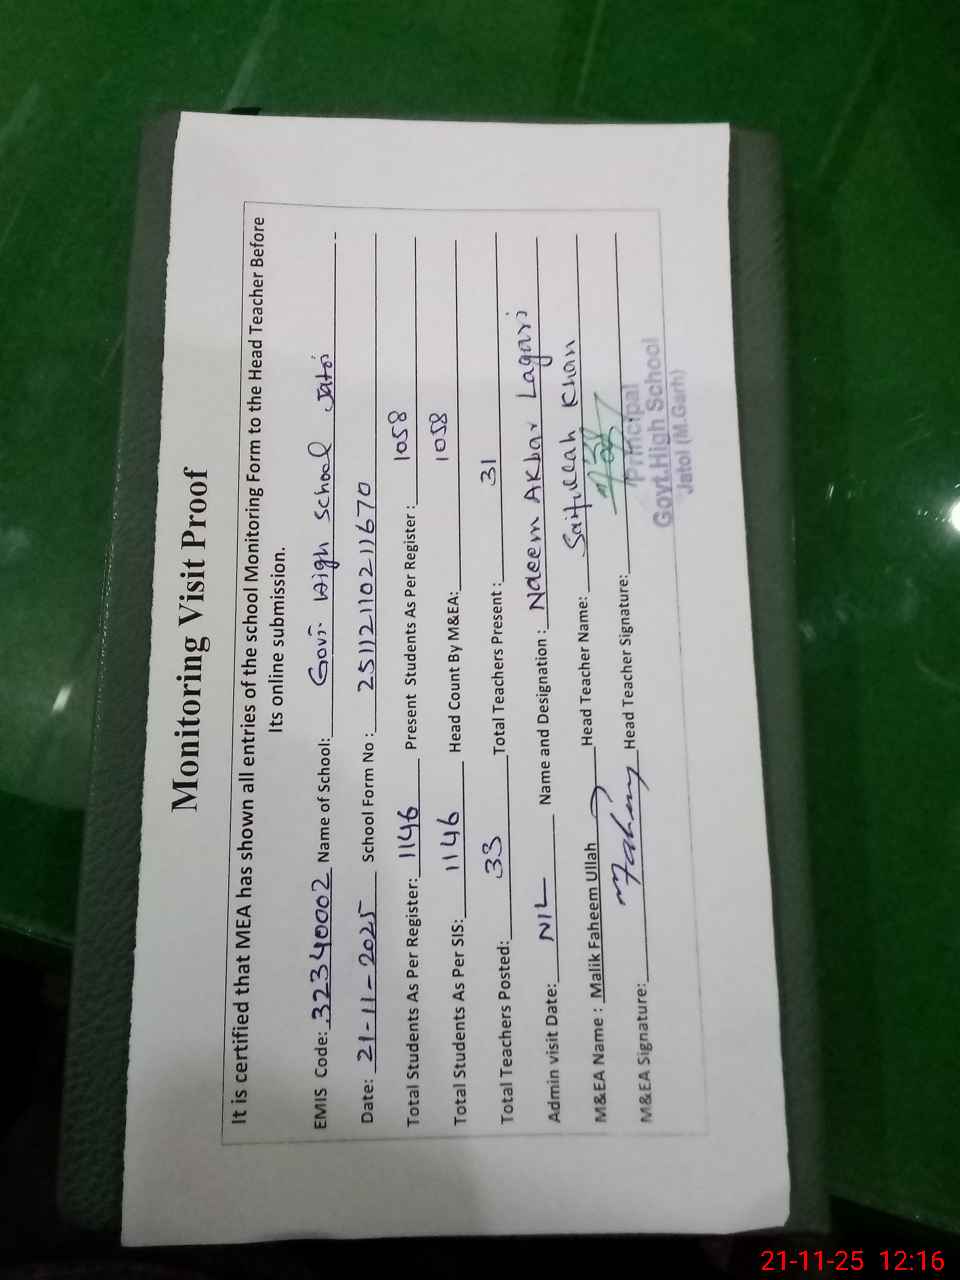 Monitoring Visit Proof
It is certified that MEA has shown all entries of the school Monitoring Form to the Head Teacher Before
Its online submission.
EMIS Code: 32340002 Name of School: Govt. High School Jatoi
Date: 21-11-2025 School Form No: 251121102211670
Total Students As Per Register: 1146 Present Students As Per Register: 1058
Total Students As Per SIS: 1146 Head Count By M&EA: 1058
Total Teachers Posted: 33 Total Teachers Present: 31
Admin visit Date: NIL Name and Designation: Naeem Akbar Lagari
M&EA Name: Malik Faheem Ullah Head Teacher Name: Saifullah Khan
M&EA Signature: Faheem Head Teacher Signature:
Principal
Govt. High School
Jatoi (M.Garh)
21-11-25 12:16